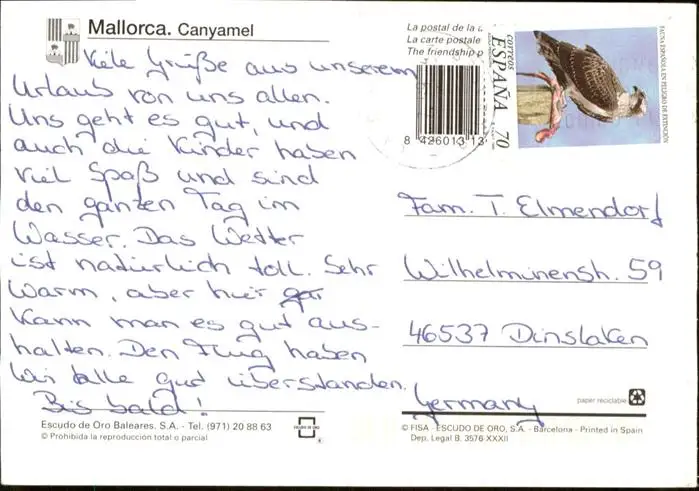 Mallorca. Canyamel
Viele Grüße aus unserem
Urlaub von uns allen.
Uns geht es gut, und
auch die Kinder haben
viel Spaß und sind
den ganzen Tag im
Wasser. Das Wetter
ist natürlich toll. Sehr
warm, aber hier
kann man es gut aus-
halten. Den Flug haben
wir alle gut überstanden.
Bis bald!
Escudo de Oro Baleares. S.A. - Tel. (971) 20 88 63
© Prohibida la reproducción total o parcial
ESCUDO DE ORO
La postal de la
La carte postale
The friendship p
8 426013 13
correos
ESPAÑA 70
FAUNA ESPAÑOLA EN PELIGRO DE EXTINCIÓN
Fam. T. Elmendorf
Wilhelminenstr. 59
46537 Dinslaken
Germany
paper reciclable
© FISA - ESCUDO DE ORO, S.A. - Barcelona - Printed in Spain
Dep. Legal B. 3576-XXXII